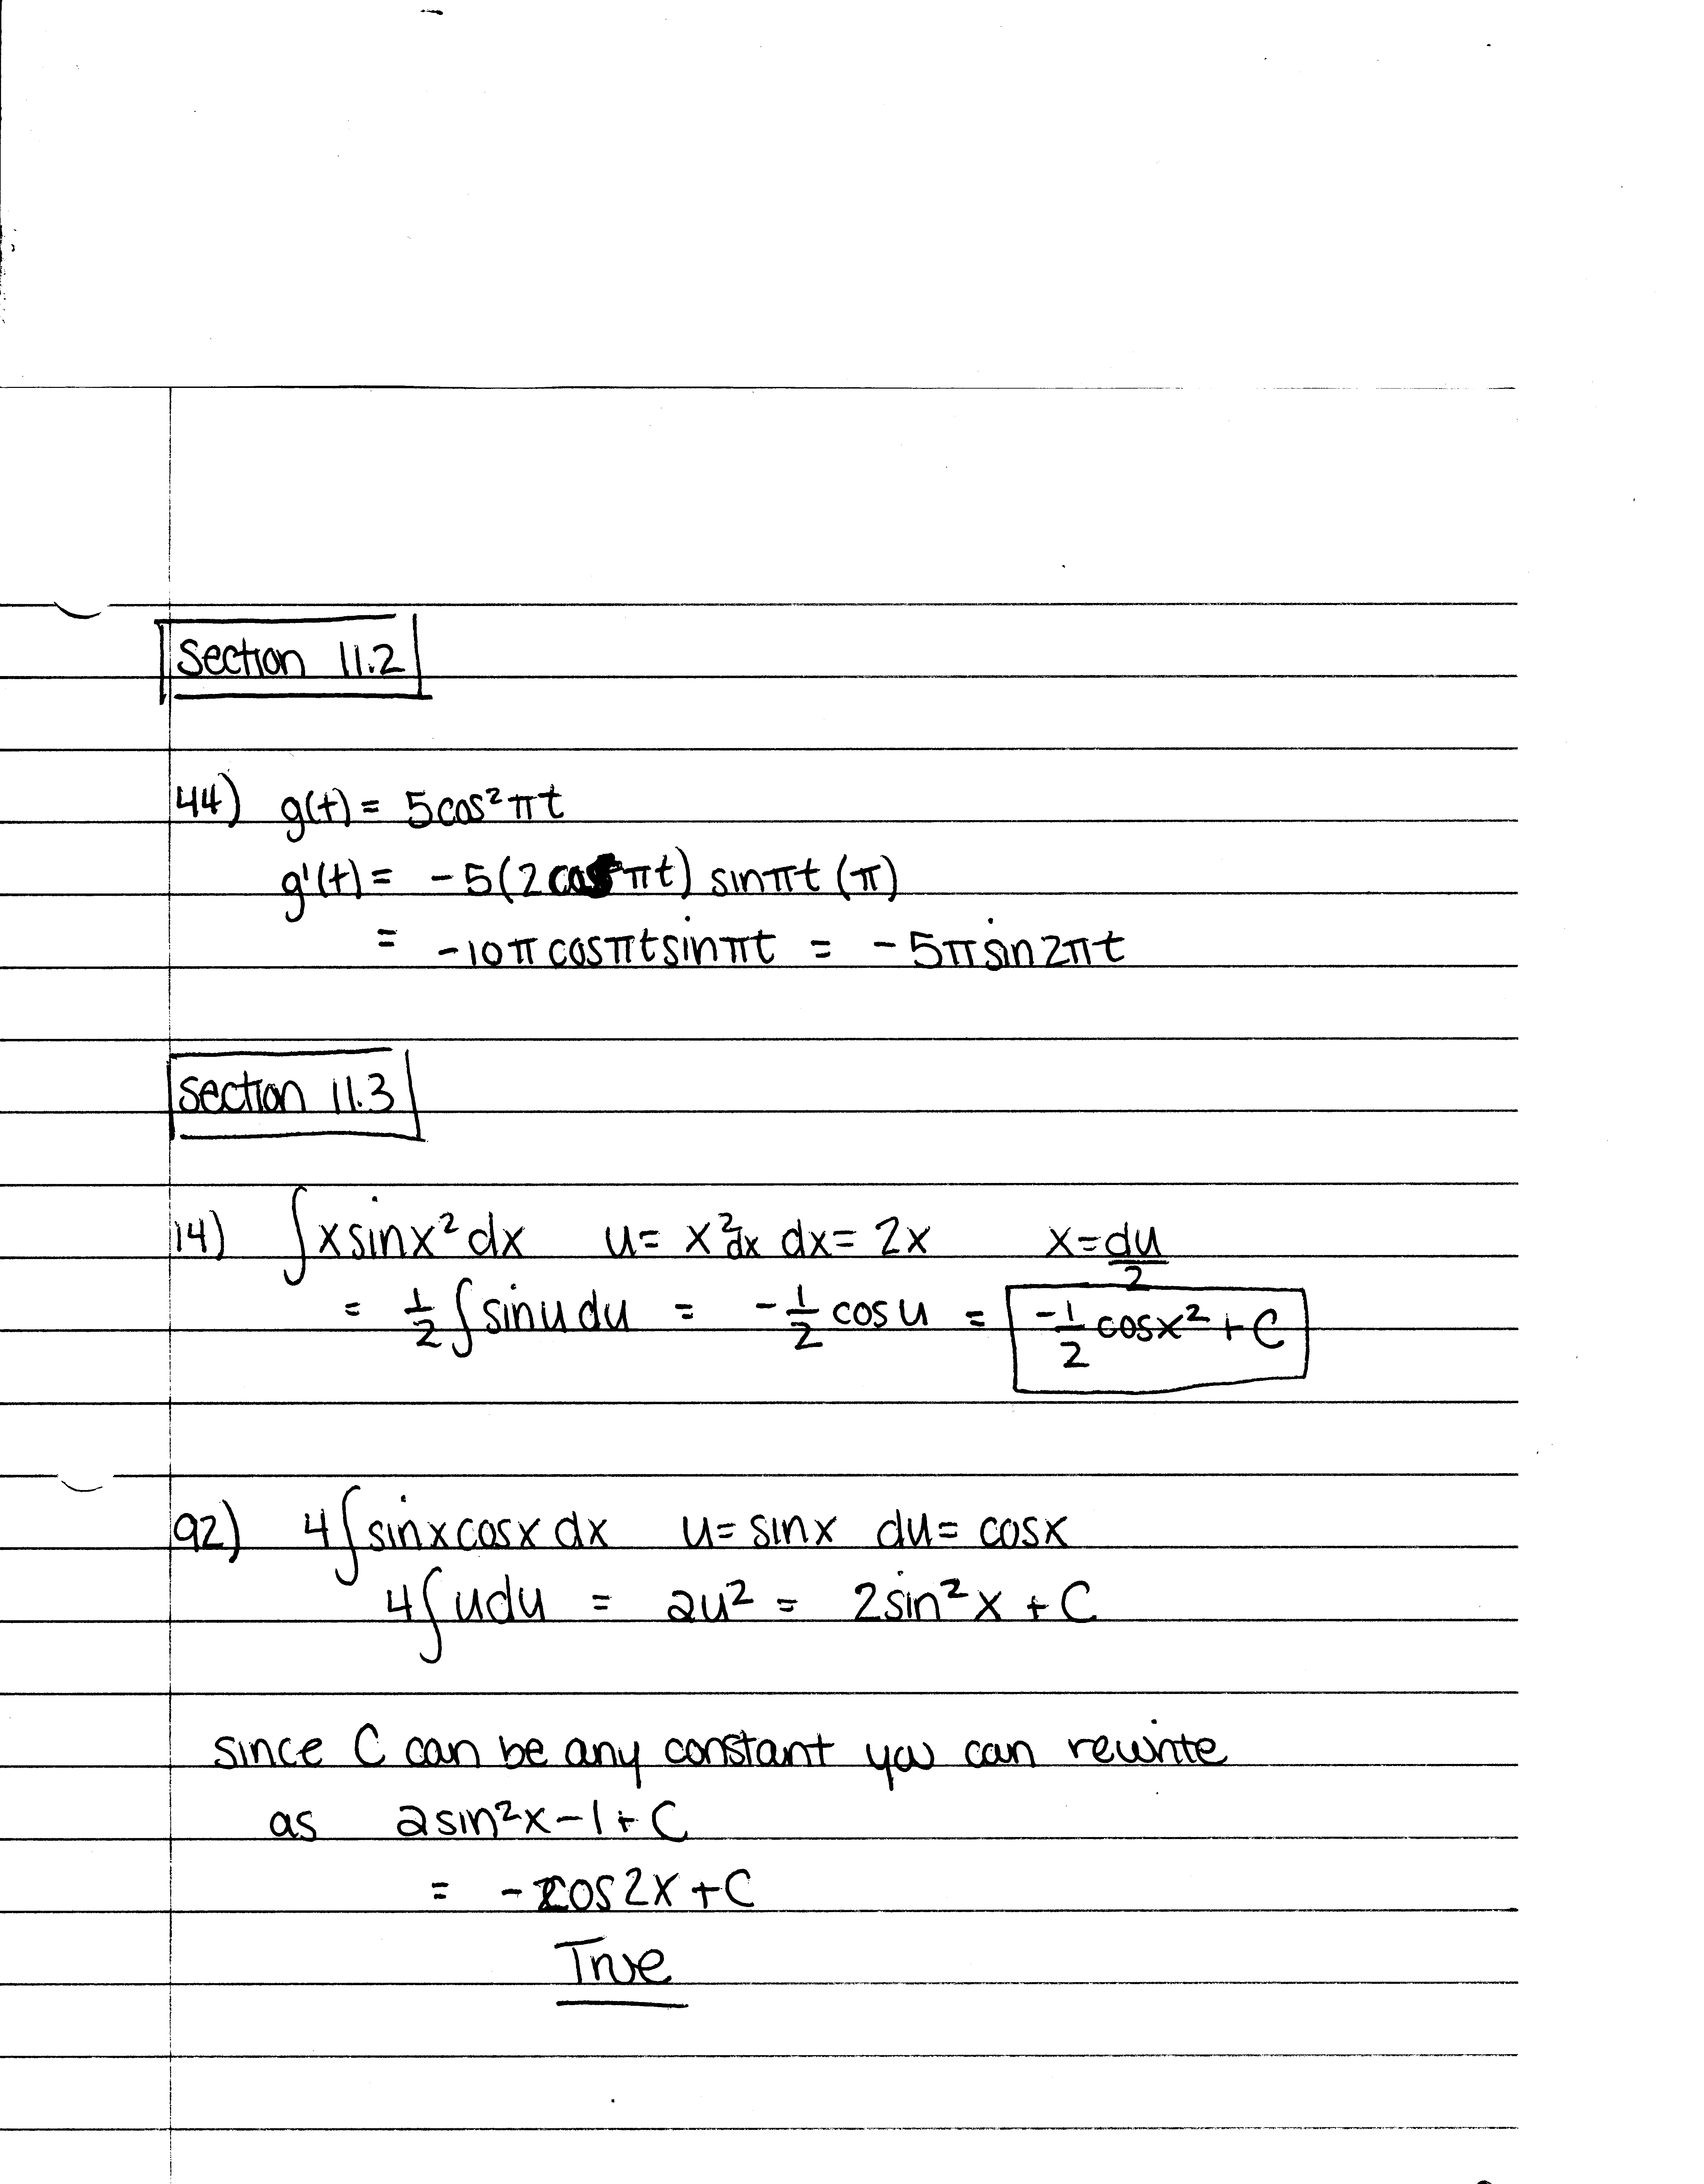 Section 11.2
44) g(t) = 5cos²πt
g'(t) = -5(2cosπt) sinπt (π)
= -10πcosπtsinπt = -5πsin2πt
Section 11.3
14) ∫xsinx²dx u= x² dx dx= 2x x=du/2
= 1/2∫sinudu = -1/2cosu = -1/2cosx²+C
92) 4∫sinxcosxdx u=sinx du=cosx
4∫udu = 2u² = 2sin²x+C
since C can be any constant you can rewrite
as 2sin²x-1+C
= -cos2x+C
True